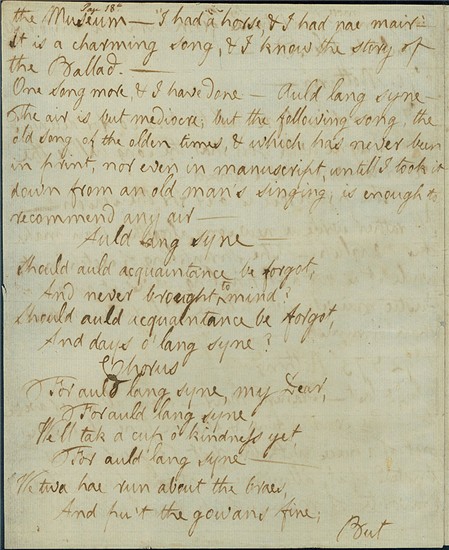 the Museum — "I had a horse, & I had nae mair —
It is a charming song, & I know the story of
the Ballad. —
One song more, & I have done — Auld lang syne —
The air is but mediocre; but the following song, the
old song of the olden times, & which has never been
in print, nor even in manuscript, until I took it
down from an old man's singing, is enough to
recommend any air —
Auld lang syne —
Should auld acquaintance be forgot,
And never brought to mind?
Should auld acquaintance be forgot,
And days o' lang syne?
Chorus
For auld lang syne, my Dear,
For auld lang syne,
We'll take a cup o' kindness yet
For auld lang syne —
We twa hae run about the braes,
And pu't the gowans fine;
But